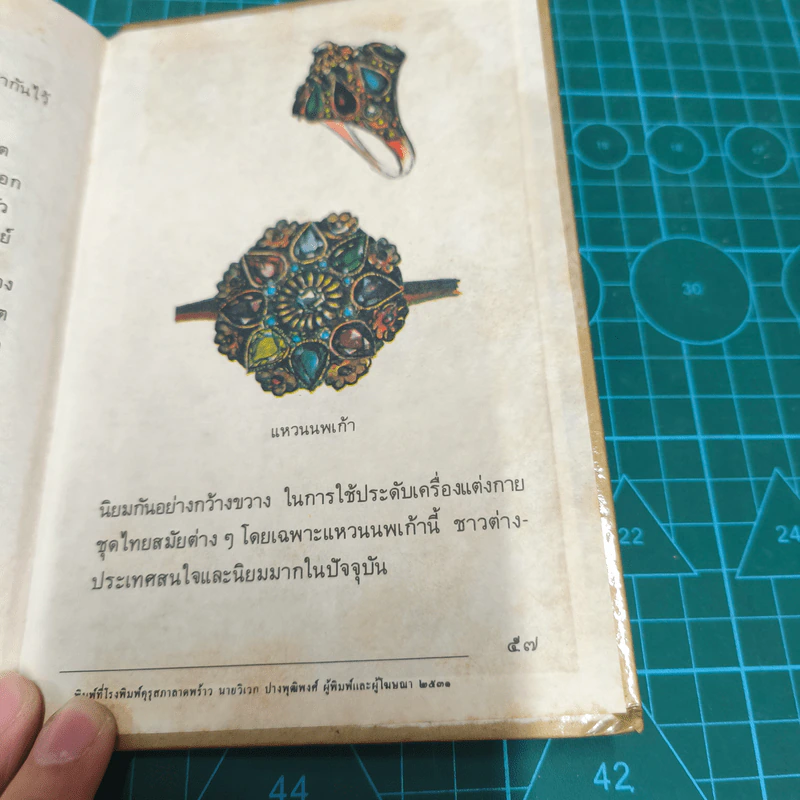 ากันไว้
ต
อก
ัว
ย์
อง
ต
แหวนนพเก้า
นิยมกันอย่างกว้างขวาง ในการใช้ประดับเครื่องแต่งกาย
ชุดไทยสมัยต่าง ๆ โดยเฉพาะแหวนนพเก้านี้ ชาวต่าง-
ประเทศสนใจและนิยมมากในปัจจุบัน
๕๗
พิมพ์ที่โรงพิมพ์คุรุสภาลาดพร้าว นายวิเวก ปางพุฒิพงศ์ ผู้พิมพ์และผู้โฆษณา ๒๕๓๑
30
22
24
44
42